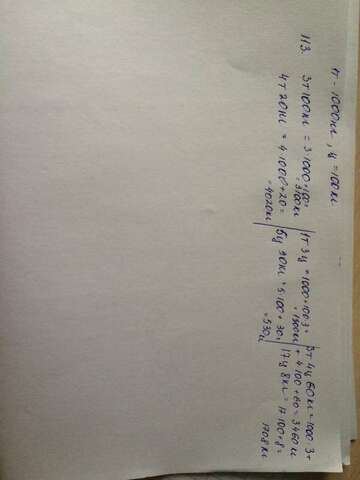 1т - 1000кг, ц = 100кг
113. 3т100кг = 3·1000+100=
=3100кг
4т 20кг = 4·1000+20=
=4020кг
1т 3ц = 1000+100·3=
=1300кг
5ц 30кг = 5·100+30=
=530кг
3т 4ц 60кг = 1000·3+
+ 4·100+60=3460кг
17ц 8кг = 17·100+8=
1708кг